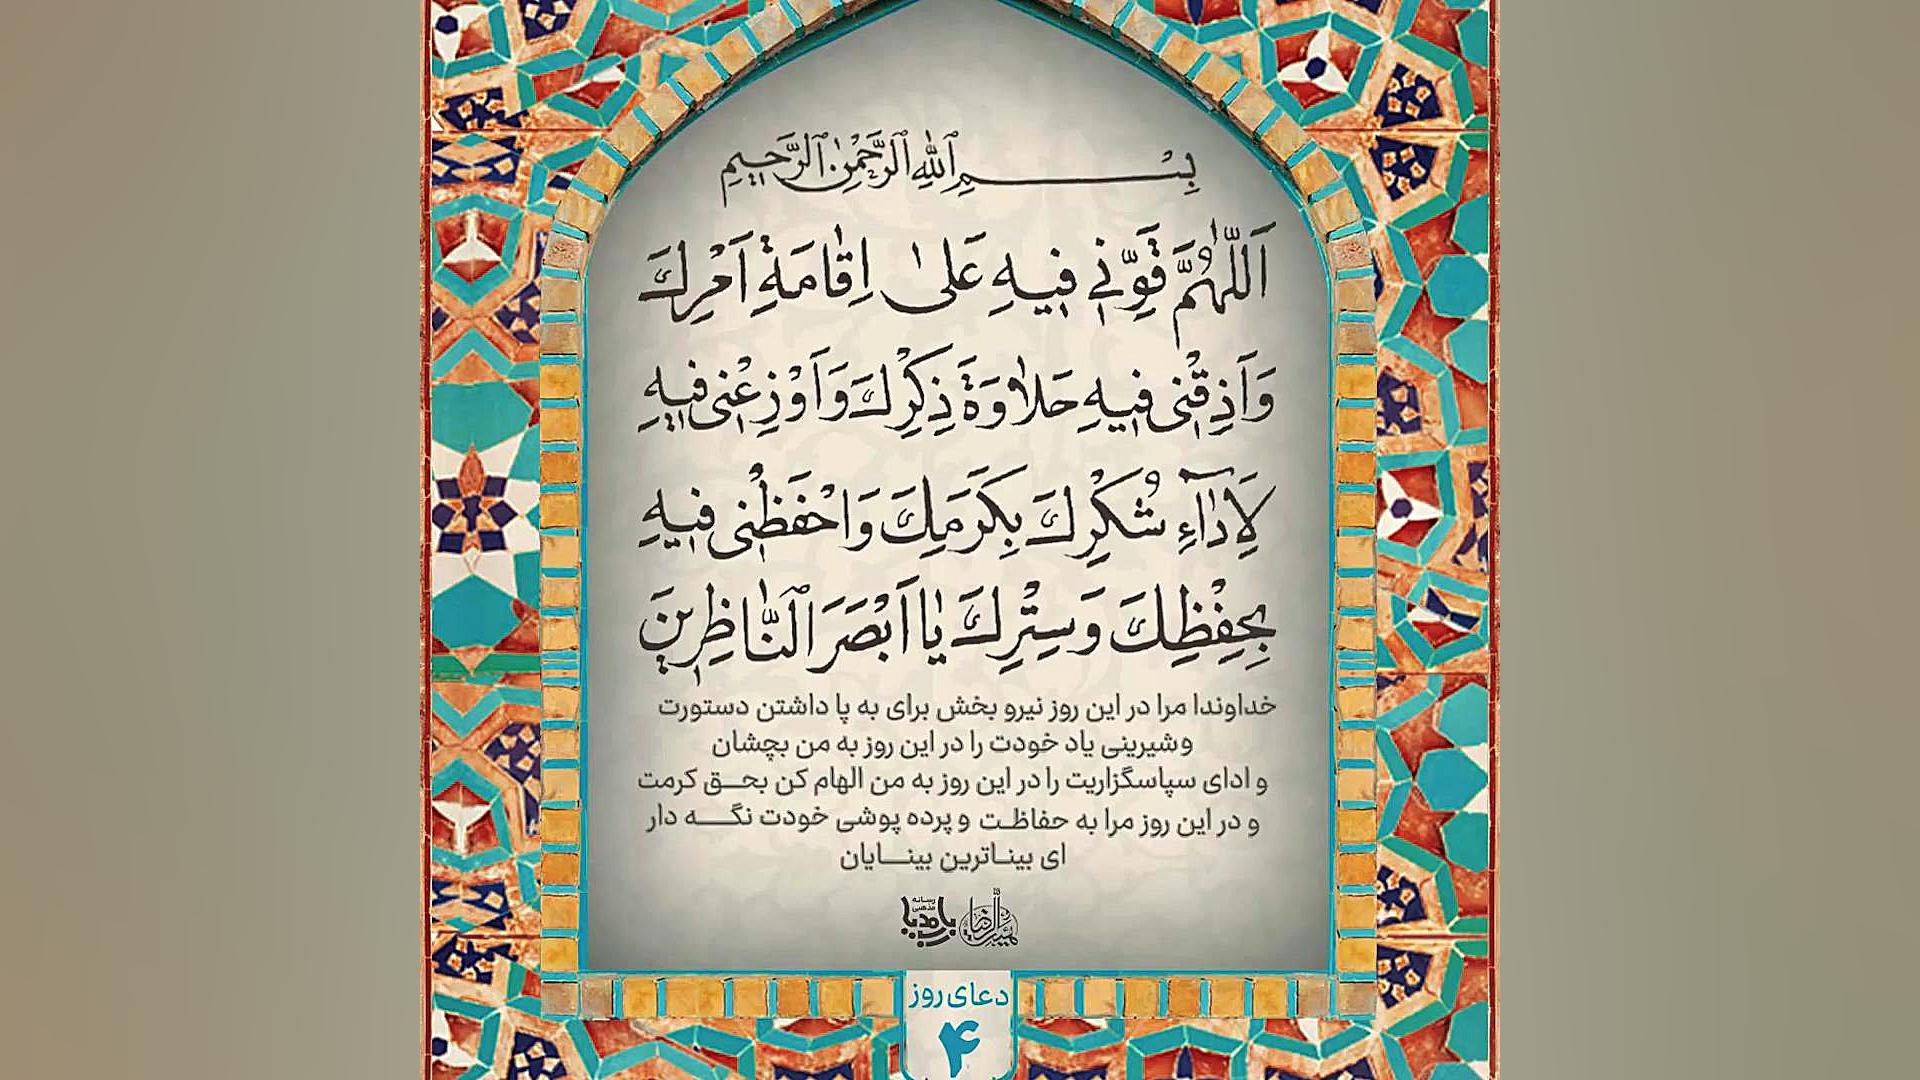 بِسْمِ ٱللّٰهِ ٱلرَّحْمٰنِ ٱلرَّحِيمِ
اَللّٰهُمَّ قَوِّنِي فِيهِ عَلىٰ اِقَامَةِ اَمْرِكَ
وَاَذِقْنِى فِيهِ حَلاٰوَةَ ذِكْرِكَ وَاَوْزِعْنِى فِيهِ
لِاَدٰآءِ شُكْرِكَ بِكَرَمِكَ وَاحْفَظْنِى فِيهِ
بِحِفْظِكَ وَسِتْرِكَ يٰا اَبْصَرَ ٱلنّٰاظِرِينَ
خداوندا مرا در این روز نیرو بخش برای به پا داشتن دستورت
وشیرینی یاد خودت را در این روز به من بچشان
و ادای سپاسگزاریت را در این روز به من الهام کن بحق کرمت
و در این روز مرا به حفاظت و پرده پوشی خودت نگه دار
ای بیناترین بینایان
رسانه
مذهبی
دعای روز
۴